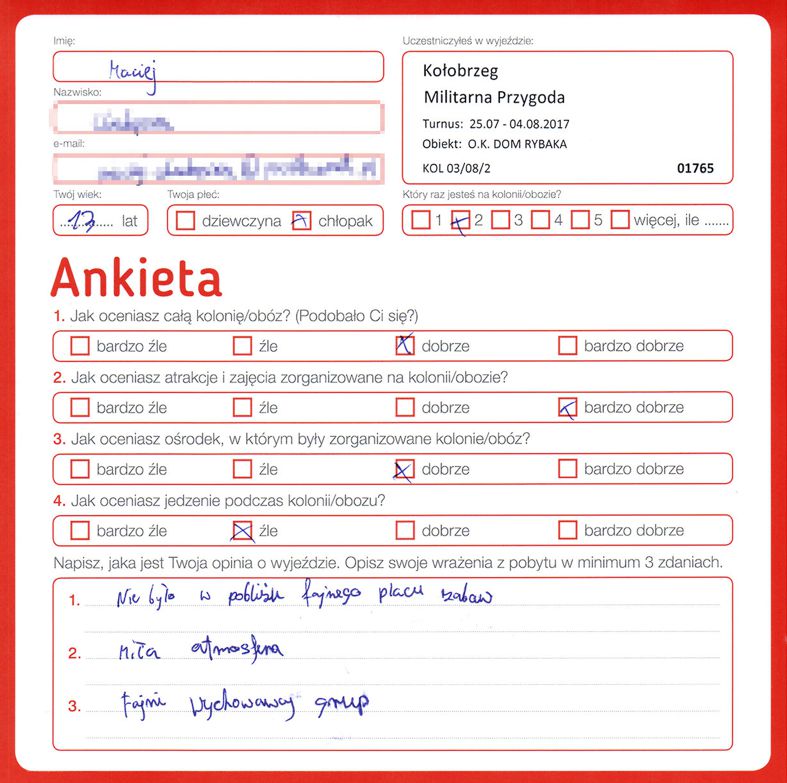 Imię:
Maciej
Nazwisko:
e-mail:
Twój wiek:
13 lat
Twoja płeć:
dziewczyna chłopak
Uczestniczyłeś w wyjeździe:
Kołobrzeg
Militarna Przygoda
Turnus: 25.07 - 04.08.2017
Obiekt: O.K. DOM RYBAKA
KOL 03/08/2 01765
Który raz jesteś na kolonii/obozie?
1 2 3 4 5 więcej, ile .......
Ankieta
1. Jak oceniasz całą kolonię/obóz? (Podobało Ci się?)
bardzo źle źle dobrze bardzo dobrze
2. Jak oceniasz atrakcje i zajęcia zorganizowane na kolonii/obozie?
bardzo źle źle dobrze bardzo dobrze
3. Jak oceniasz ośrodek, w którym były zorganizowane kolonie/obóz?
bardzo źle źle dobrze bardzo dobrze
4. Jak oceniasz jedzenie podczas kolonii/obozu?
bardzo źle źle dobrze bardzo dobrze
Napisz, jaka jest Twoja opinia o wyjeździe. Opisz swoje wrażenia z pobytu w minimum 3 zdaniach.
1. Nie było w pobliżu fajnego placu zabaw
2. Miła atmosfera
3. Fajni wychowawcy grup